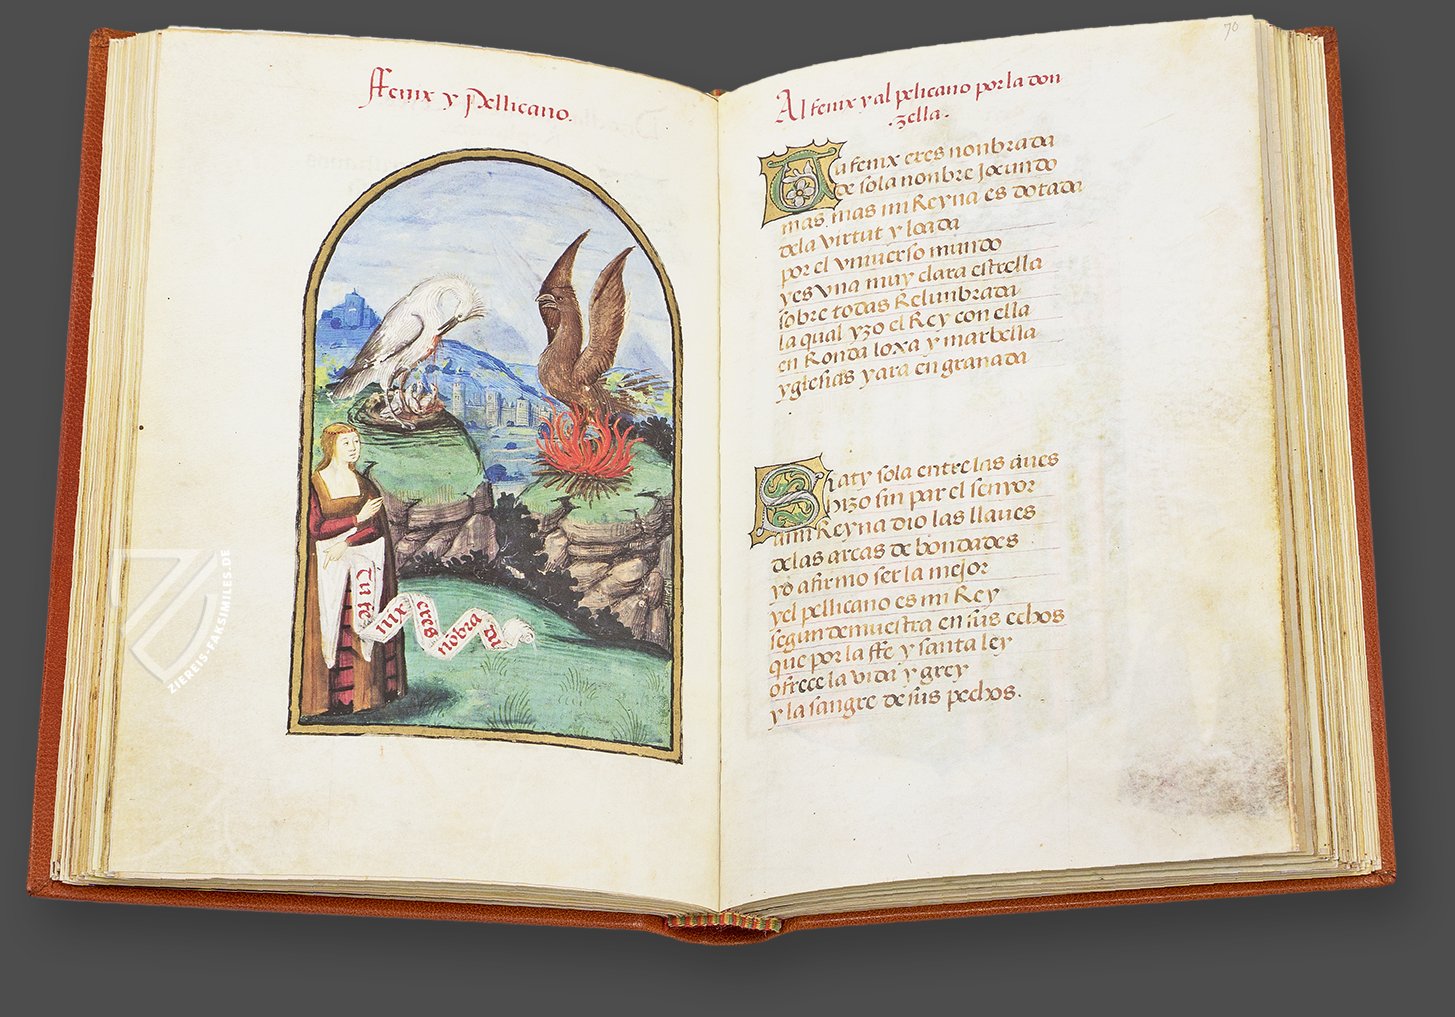 ffenix y pellicano.
Tu fe
nix
eres
nōbra
da
ZIEREIS-FAKSIMILES.DE
70
Al fenix y al pelicano por la don
·zella·
Tu fenix eres nonbrada
de sola nonbre Jocundo
mas mas mi Reyna es dotada
dela virtut y loada
por el vniuerso mundo
yes vna muy clara estrella
sobre todas Relunbrada
la qual yzo el Rey con ella
en Ronda loxa y marbella
yglesias yara en granada
Si aty sola entre las aues
hizo sin par el senyor
ami Reyna dio las llaues
delas arcas de bondades
yo afirmo ser la mejor
yel pellicano es mi Rey
segun demuestra en sus echos
que por la ffe y santa ley
ofrece la vida y grey
y la sangre de sus pechos.